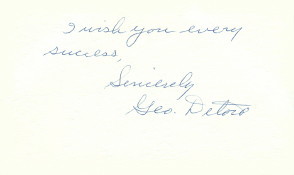 I wish you every
success,
Sincerely
Geo. Detore